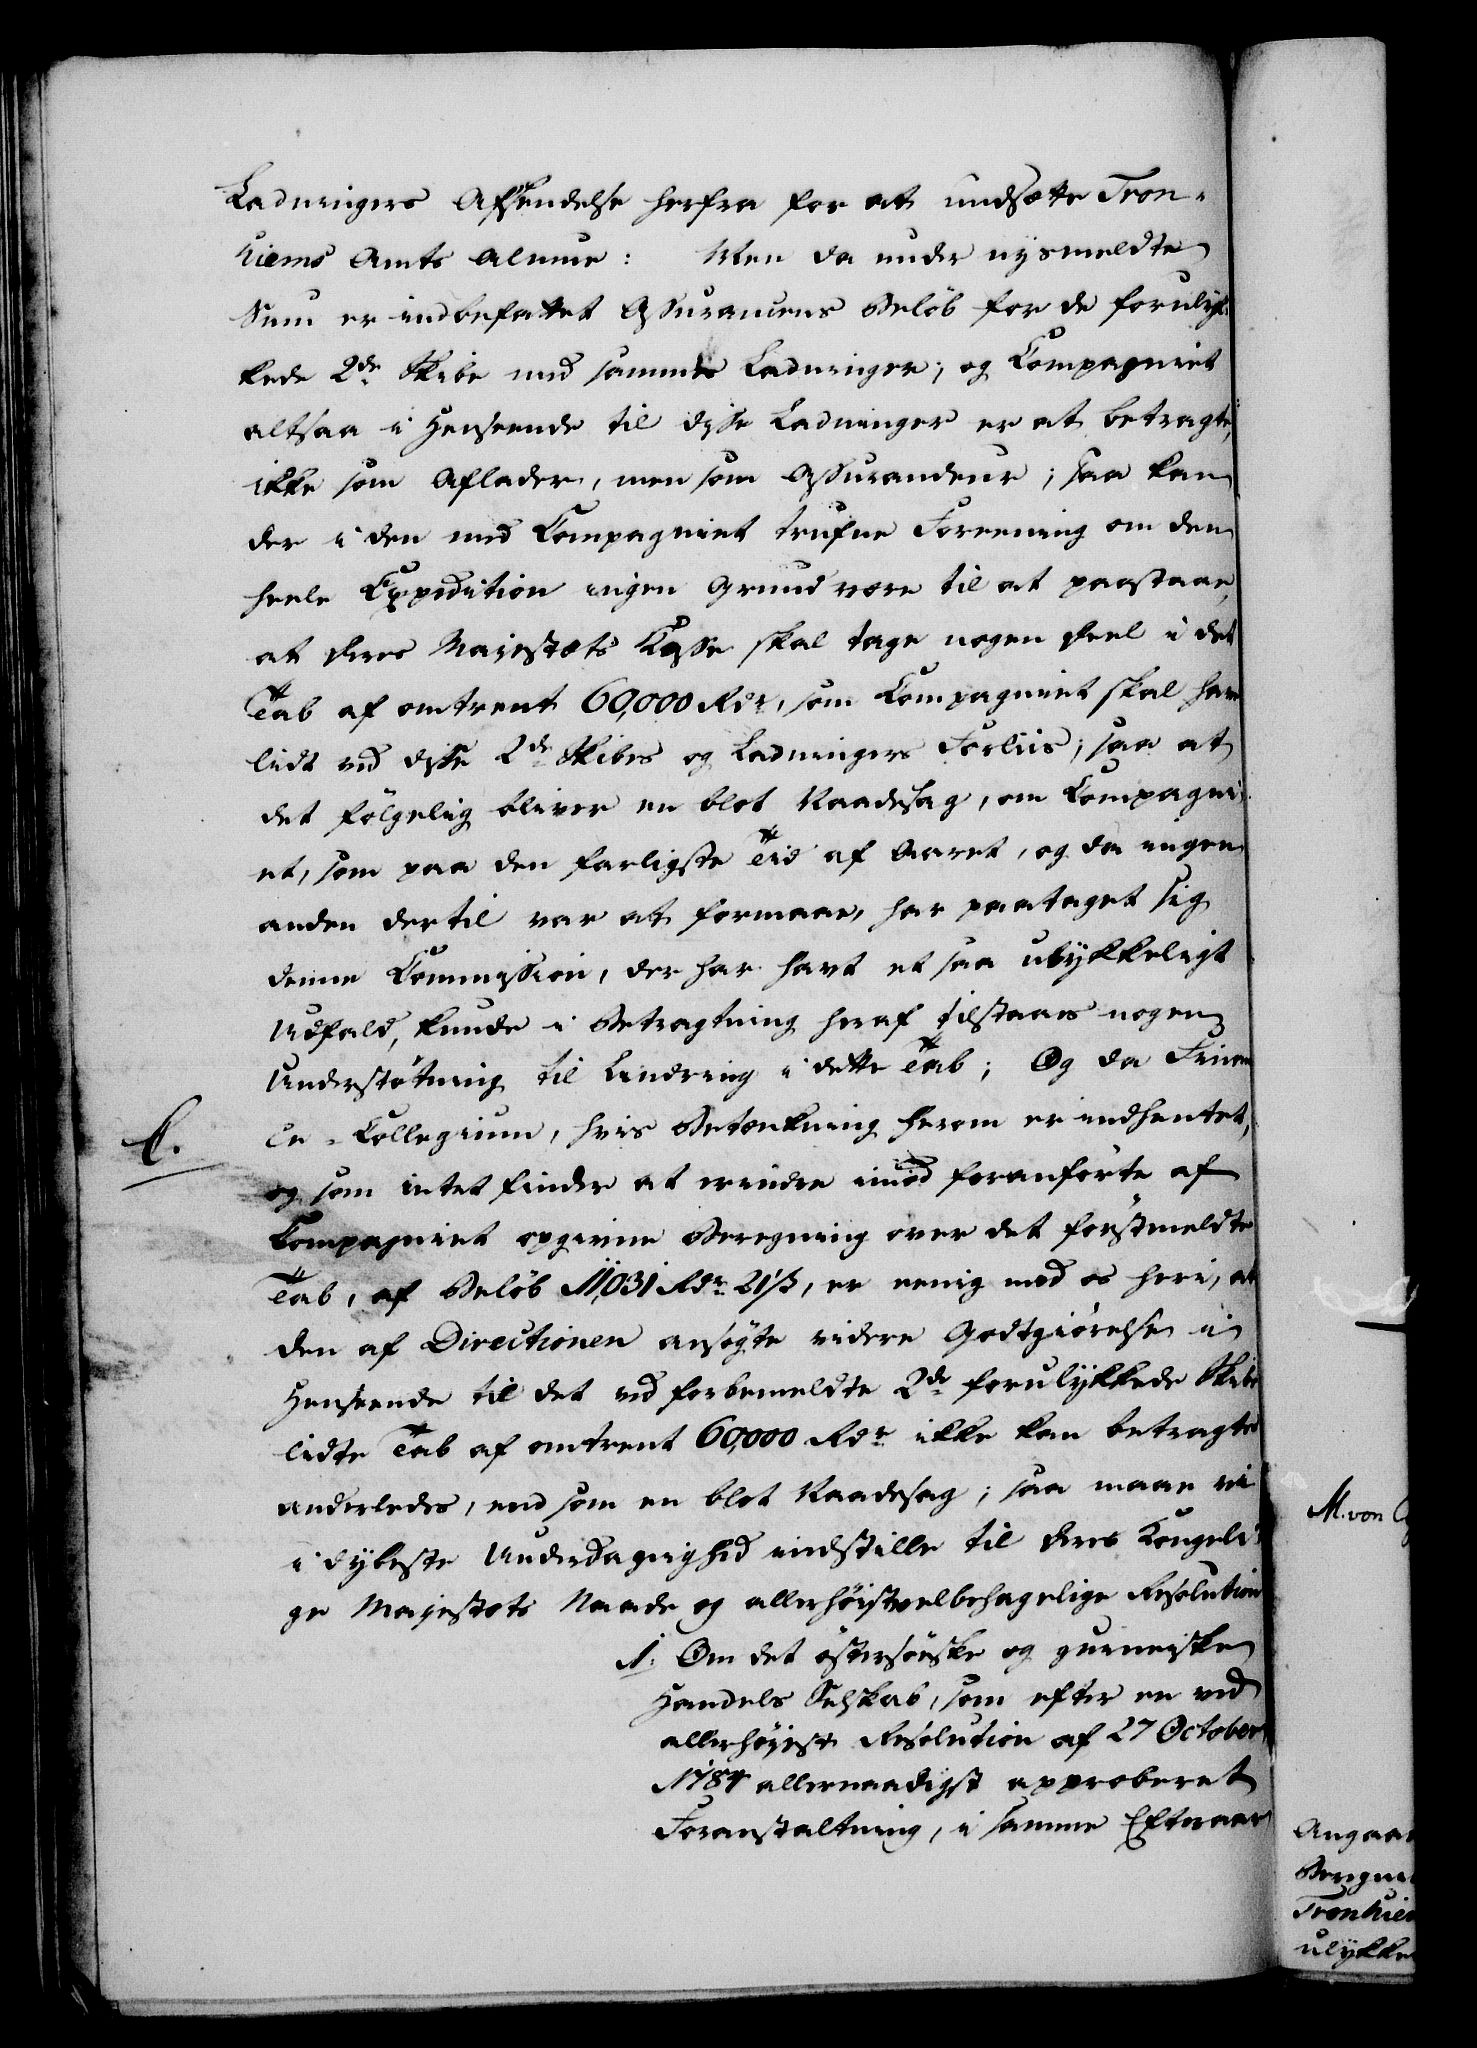 Ladningers Afsendelse herfra for at undsætte Tron-
hiems Amts Almue: Men da under nysmeldte
Sum er indbefattet Assurancens Beløb for de forulyk-
kede 2de Skibe med sammes Ladninger; og Compagniet
altsaa i Henseende til disse Ladninger er at betragte,
ikke som Aflader, men som Assurandeur; saa kan
der i den med Compagniet trufne Foreening om den
heele Expedition ingen Grund være til at paastaae,
at Deres Majestæts Kasse skal tage nogen Deel i det
Tab af omtrent 60,000 Rdr, som Compagniet skal have
lidt ved disse 2de Skibes og Ladningers Forliis; saa at
det følgelig bliver en blot Naadesag, om Compagni-
et, som paa den farligste Tid af Aaret, og da ingen
anden dertil var at formaae, har paataget sig
denne Commission, der har havt et saa ulykkeligt
Udfald, kunde i Betragtning heraf tilstaaes nogen
Understøtning til Lindring i dette Tab; Og da Finan-
ce-Collegium, hvis Betænkning herom er indhentet,
C.
og som intet finder at erindre imod foranførte af
Compagniet opgivne Beregning over det førstmeldte
Tab, af Beløb 11,031 Rdr 21 ß, er eenig med os heri, at
den af Directionen ansøgte videre Godtgiørelse i
Henseende til det ved forbemeldte 2de forulykkede Skibe
lidte Tab af omtrent 60,000 Rdr ikke kan betragtes
anderledes, end som en blot Naadesag; saa maae vi
i dybeste Underdanighed indstille til Deres Kongeli-
ge Majestæts Naade og allerhøistvelbehagelige Resolution
1. Om det østersøiske og guineiske
Handels Selskab, som efter en ved
allerhøyeste Resolution af 27 October
1784 allernaadigst approberet
Foranstaltning, i samme Efteraar
M. von
Angaae
Beregni
Tronhiem
ulykke